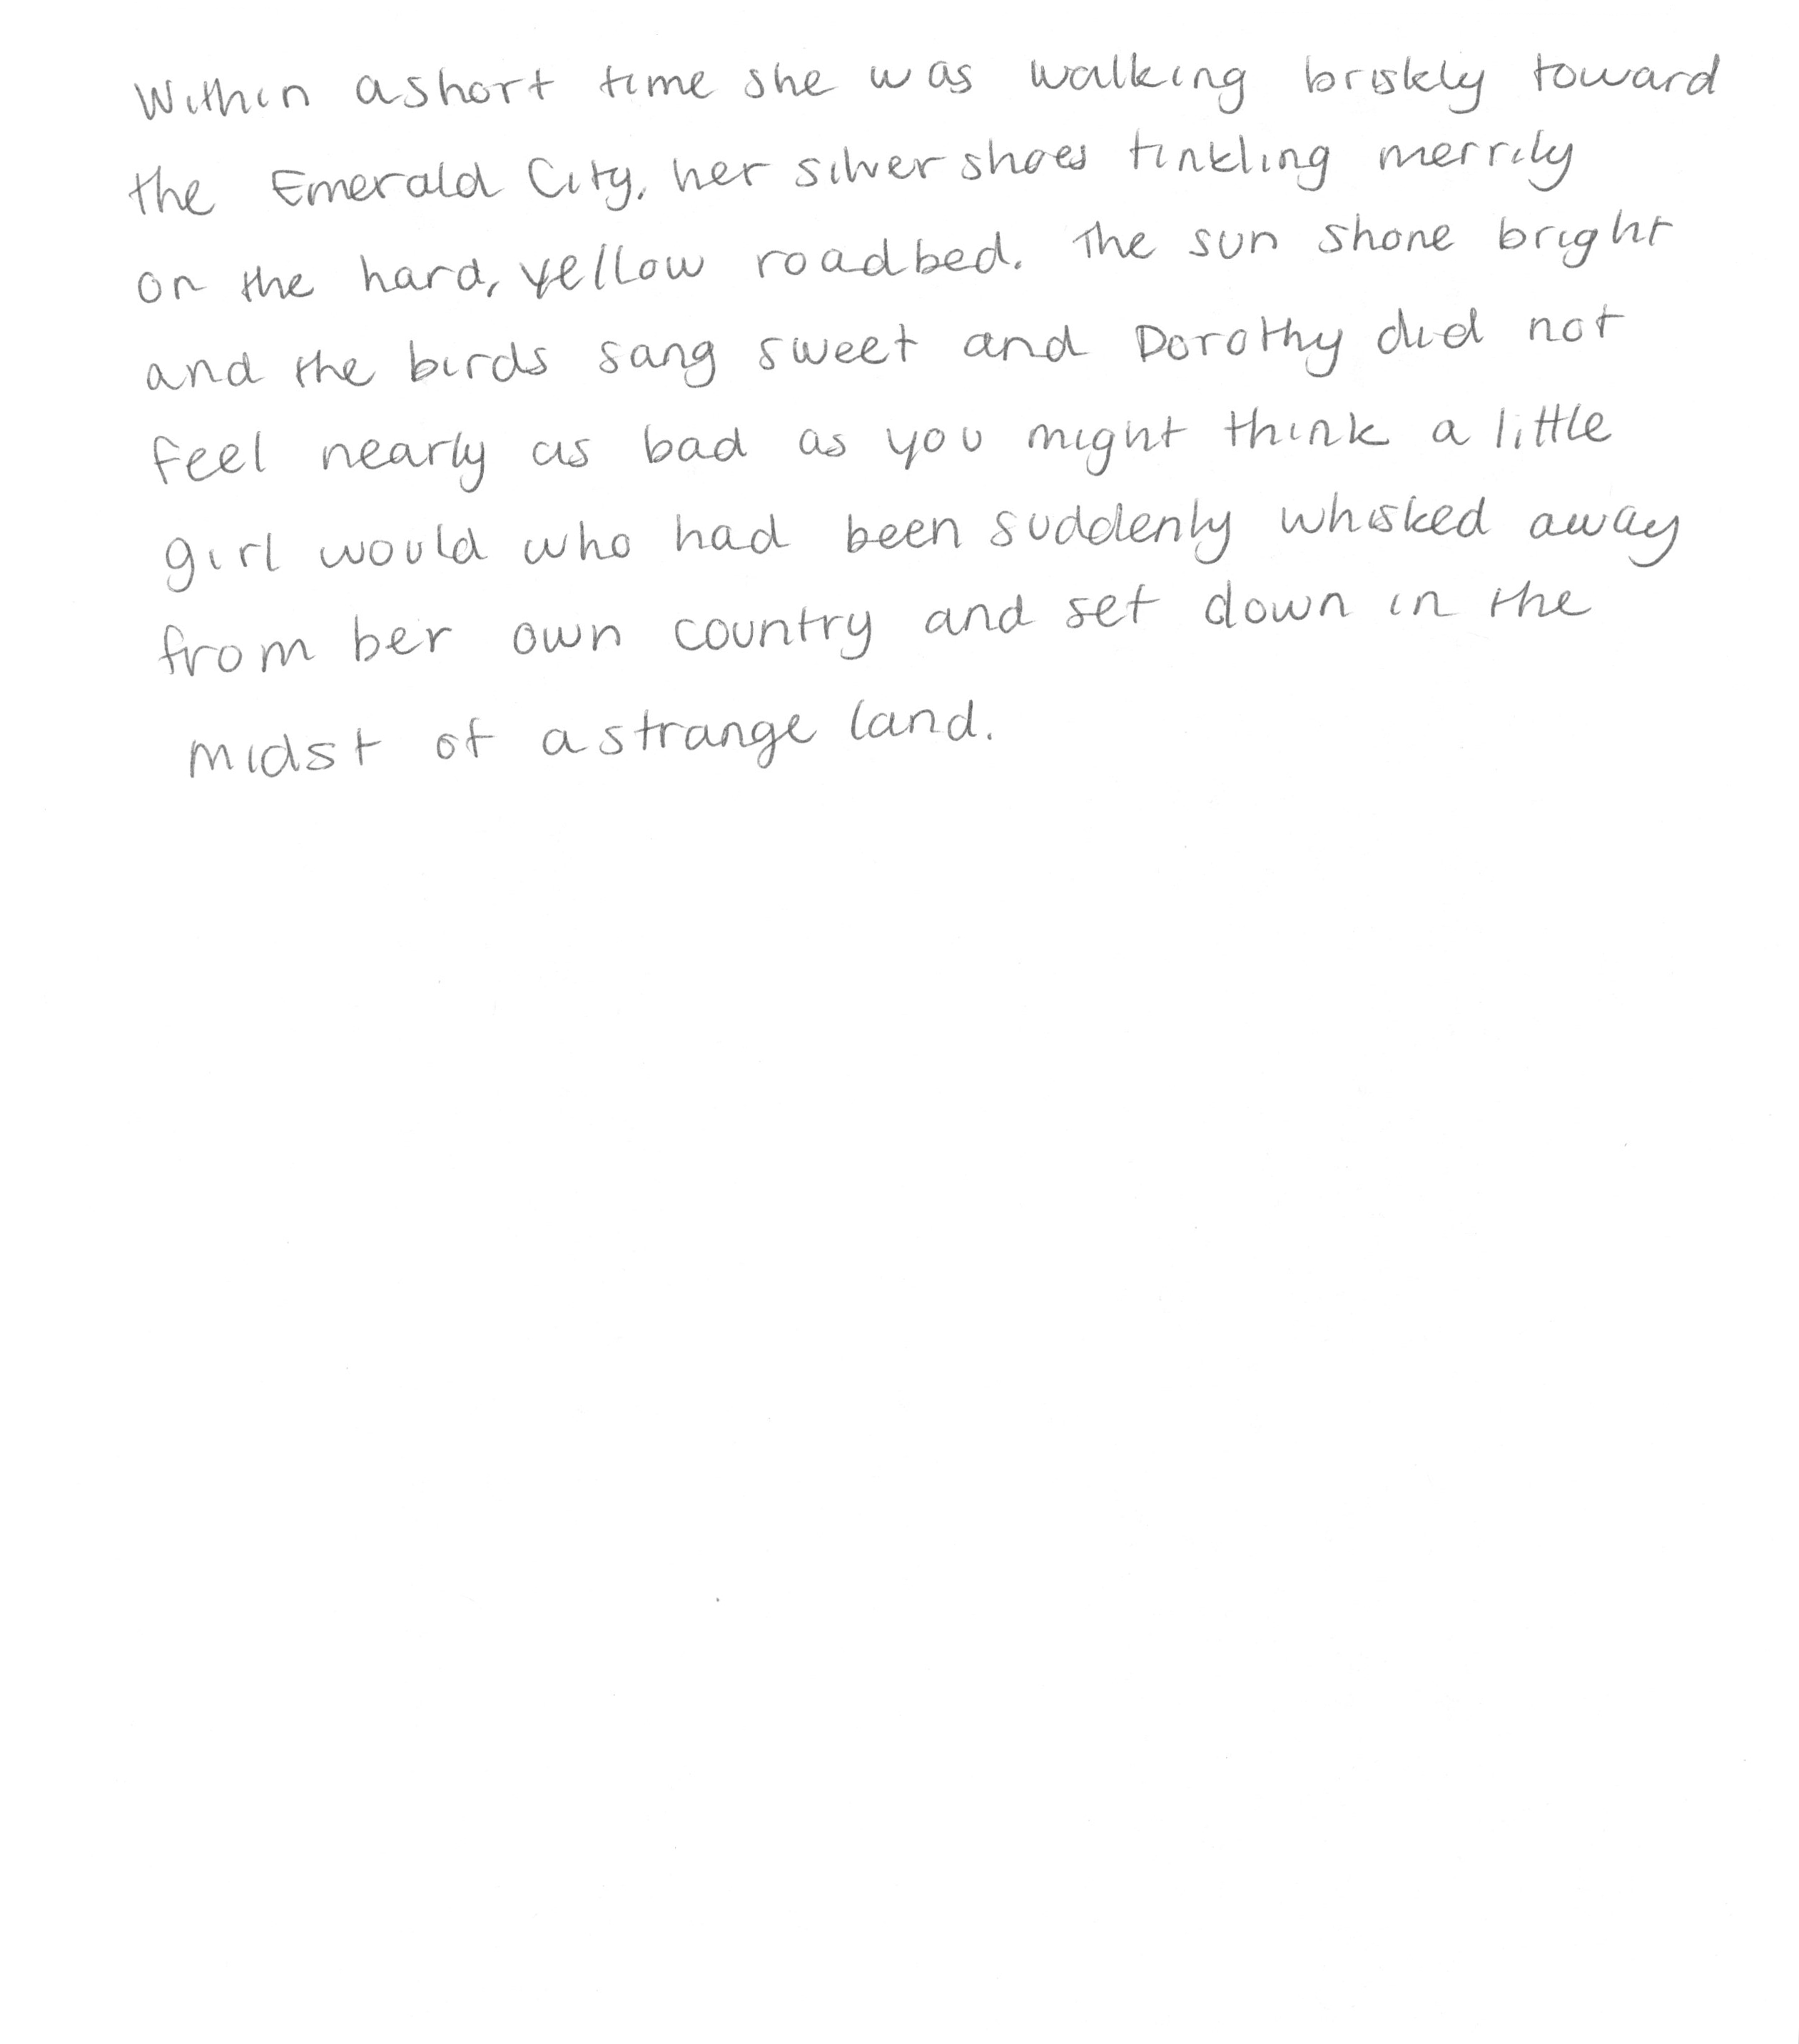 Within a short time she was walking briskly toward
the Emerald City, her silver shoes tinkling merrily
on the hard, yellow roadbed. The sun shone bright
and the birds sang sweet and Dorothy did not
feel nearly as bad as you might think a little
girl would who had been suddenly whisked away
from ber own country and set down in the
midst of a strange land.